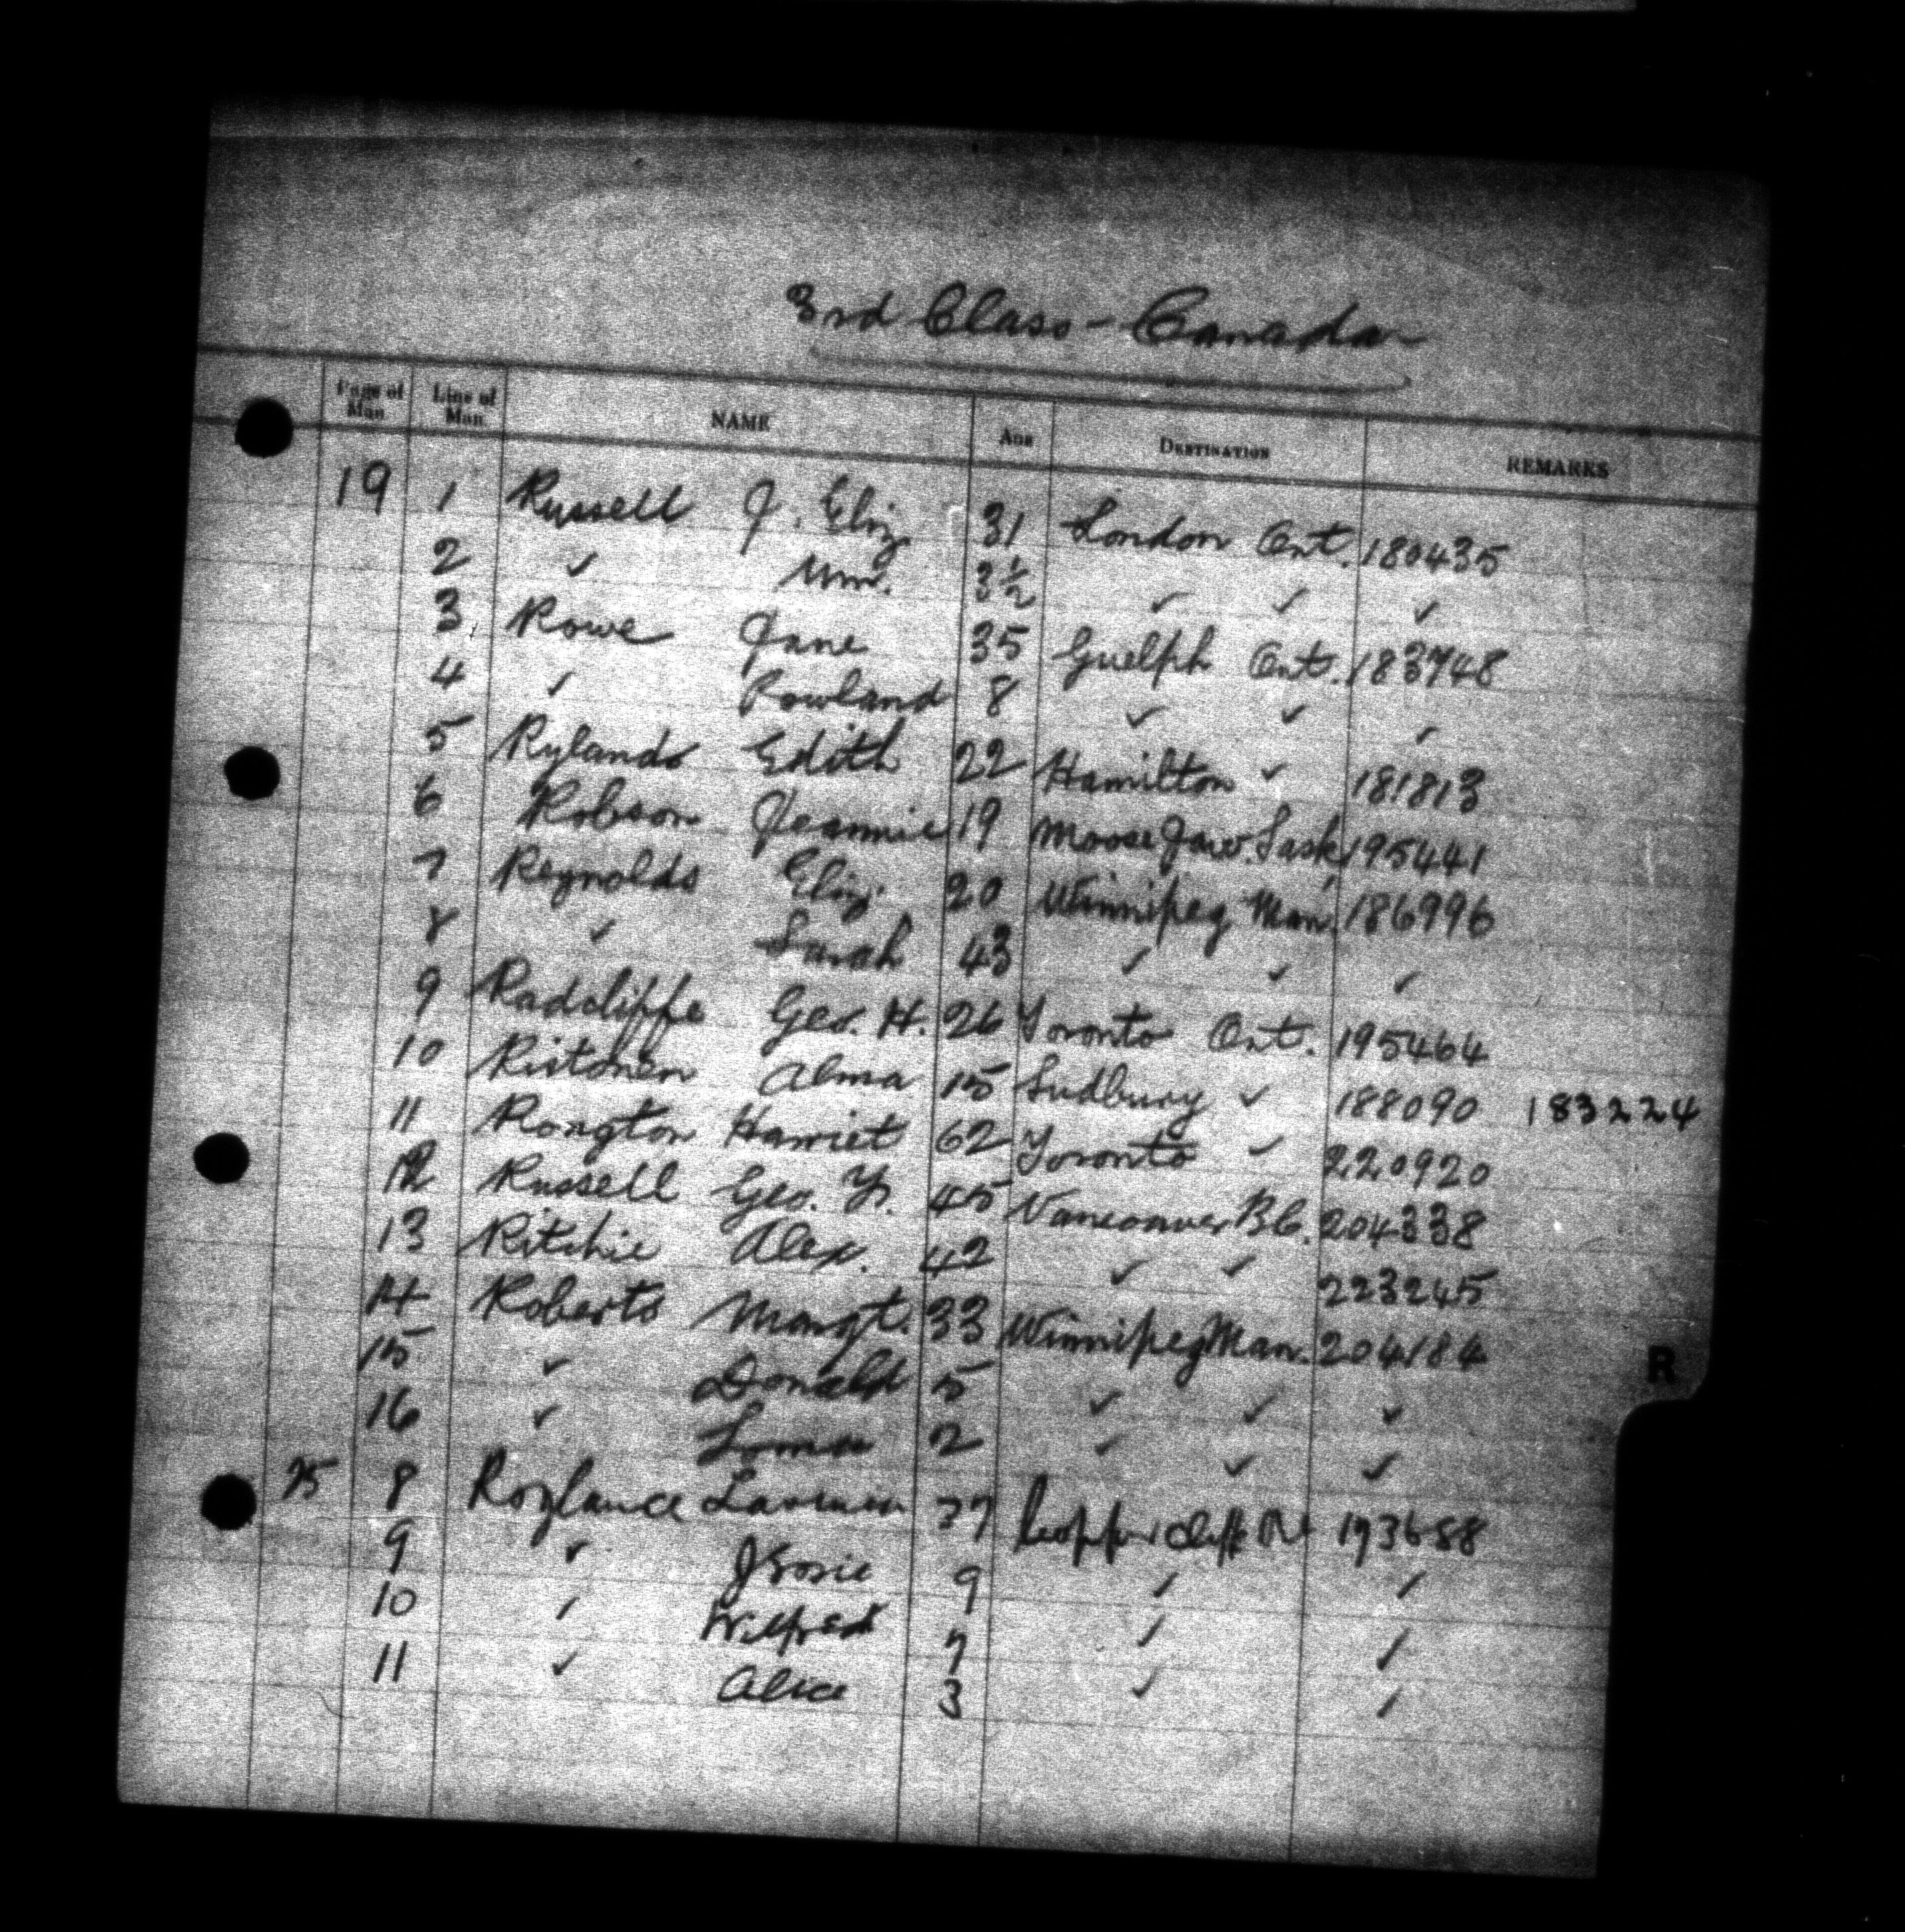 3rd Class - Canada
Page of Man Line of Man NAME AGE DESTINATION REMARKS
19 1 Russell J. Eliz. 31 London Ont. 180435
2 ✓ Wm. 3½ ✓ ✓ ✓
3 Rowe Jane 35 Guelph Ont. 183748
4 ✓ Rowland 8 ✓ ✓ ✓
5 Rylands Edith 22 Hamilton ✓ 181813
6 Robson Jeannie 19 Moose Jaw. Sask 195441
7 Reynolds Eliz. 20 Winnipeg Man. 186996
8 ✓ Sarah 43 ✓ ✓ ✓
9 Radcliffe Geo. H. 26 Toronto Ont. 195464
10 Ristonen Alma 15 Sudbury ✓ 188090 183224
11 Rongton Harriet 62 Toronto ✓ 220920
12 Russell Geo. Y. 45 Vancouver B.C. 204338
13 Ritchie Alex. 42 ✓ ✓ 223245
14 Roberts Margt. 33 Winnipeg Man. 204184
15 ✓ Donald 5 ✓ ✓ ✓
16 ✓ Lorna 2 ✓ ✓ ✓
R
25 8 Roylance 37 Copper Cliff Ont 193688
9 ✓ 9 ✓ ✓
10 ✓ Wilfred 7 ✓ ✓
11 ✓ Alice 3 ✓ ✓